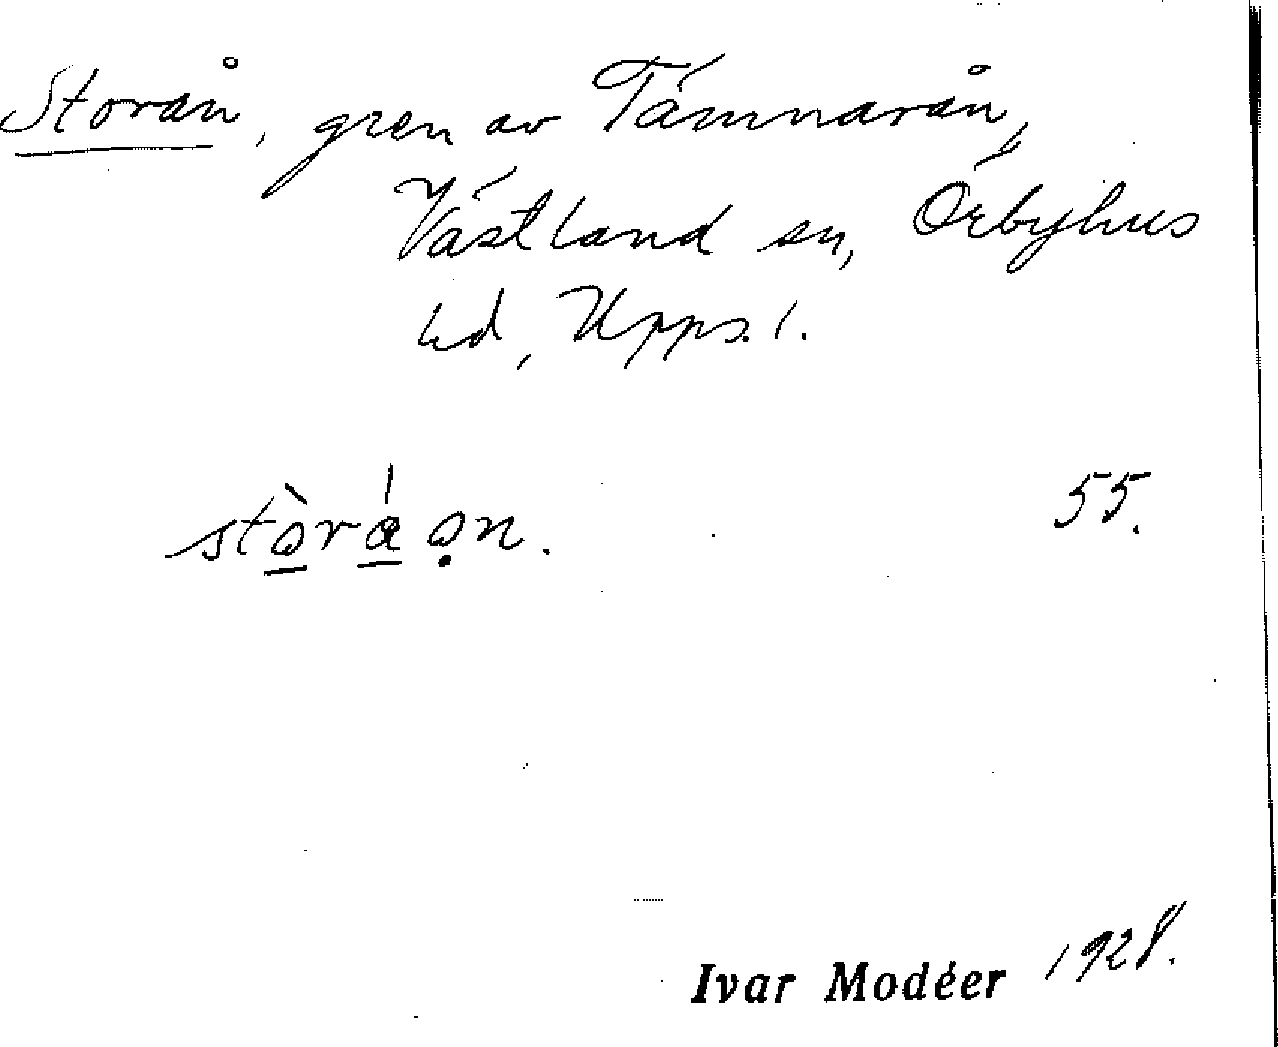 Storån, gren av Tämnarån,
Västland sn, Örbyhus
hd, Upps. l.
55.
Ivar Modéer 1928.